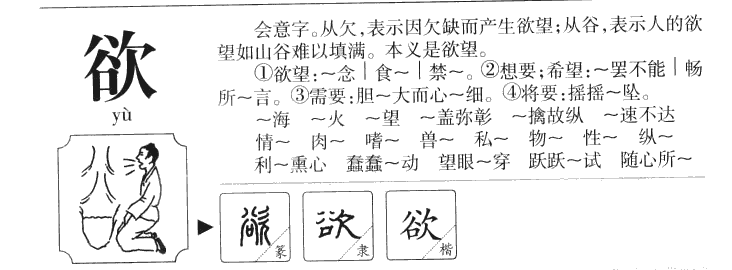 欲
yù
会意字。从欠,表示因欠缺而产生欲望;从谷,表示人的欲
望如山谷难以填满。本义是欲望。
①欲望:～念｜食～｜禁～。②想要;希望:～罢不能｜畅
所～言。③需要:胆～大而心～细。④将要:摇摇～坠。
～海 ～火 ～望 ～盖弥彰 ～擒故纵 ～速不达
情～ 肉～ 嗜～ 兽～ 私～ 物～ 性～ 纵～
利～熏心 蠢蠢～动 望眼～穿 跃跃～试 随心所～
欲 篆 欲 隶 欲 楷